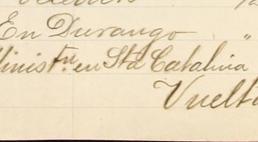 En Durango "
Minist.ᵗʳᵒ en Stā Catalina
Vuelt